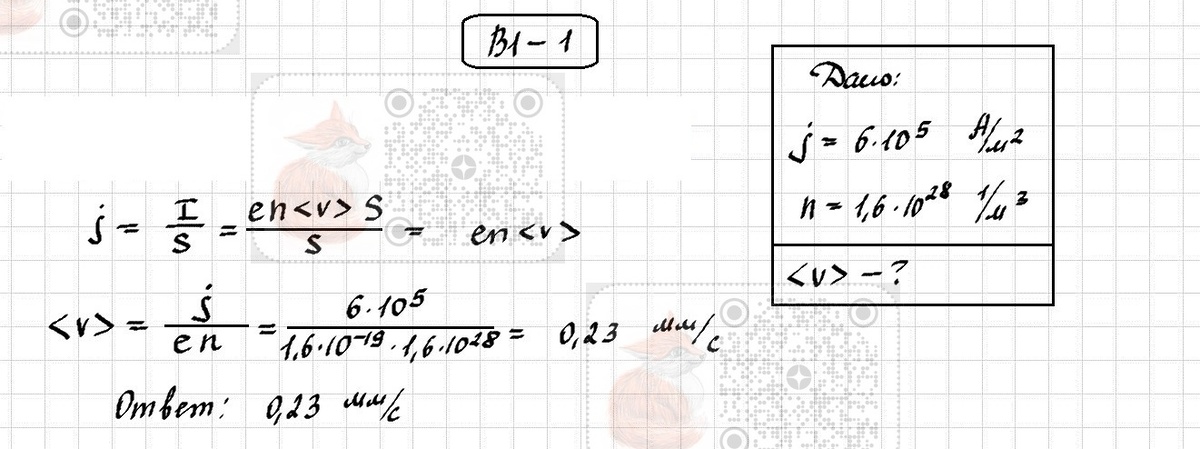 В1 - 1
Дано:
j = 6·10⁵ А/м²
n = 1,6·10²⁸ 1/м³
<v> - ?
j = I/S = en<v>S/S = en<v>
<v> = j/en = 6·10⁵/1,6·10⁻¹⁹·1,6·10²⁸ = 0,23 мм/с
Ответ: 0,23 мм/с